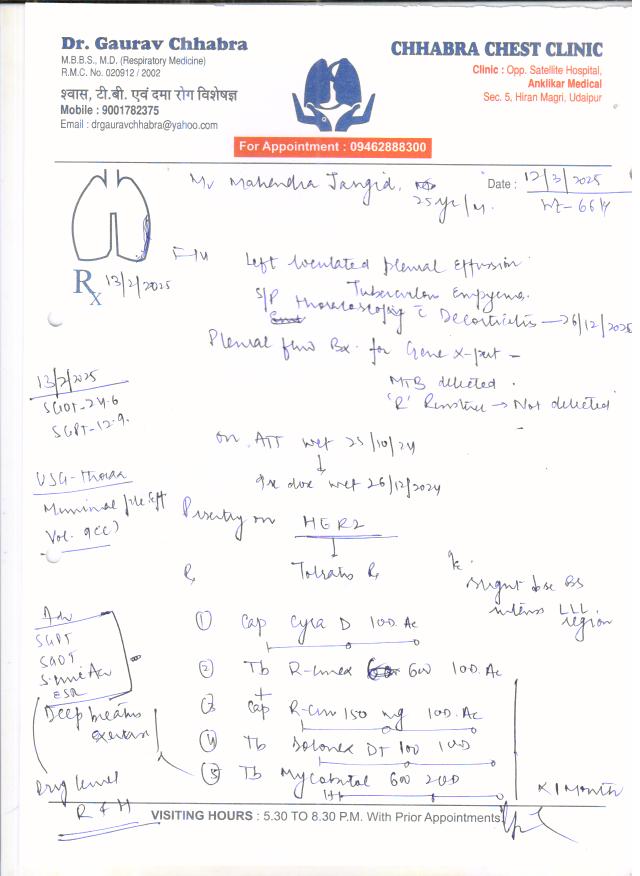 Dr. Gaurav Chhabra
M.B.B.S., M.D. (Respiratory Medicine)
R.M.C. No. 020912 / 2002
श्वास, टी.बी. एवं दमा रोग विशेषज्ञ
Mobile : 9001782375
Email : drgauravchhabra@yahoo.com
CHHABRA CHEST CLINIC
Clinic : Opp. Satellite Hospital,
Anklikar Medical
Sec. 5, Hiran Magri, Udaipur
For Appointment : 09462888300
Mr Mahendra Jangid.
25 yr/M.
Date : 12/3/2025
Wt - 66 K
Rx 13/2/2025
Left loculated pleural Effusion
Tubercular Empyema.
S/P Thoracoscopy c Decortication - 26/12/202
Pleural fluid Bx. for Gene X-pert -
MTB detected.
'R' Resistance → Not detected
13/2/2025
SGOT - 24.6
SGPT - 12.9.
on ATT wef 25/10/24
↓
wef 26/12/2024
USG - Thorax
Minimal left
Vol. 9cc)
Presently on HERZ
Adv
SGPT
SGOT
S. Uric Acid
ESR
Deep breaths
exercise
Drug level
R & H
① Cap Cyra D 1 OD. Ac
② Tb R-cinex 600 1 OD. Ac
+
③ Cap R-cin 150 mg 1 OD. Ac
④ Tb Solonex DT 100 1 OD
⑤ Tb Mycobutol 600 2 OD
LLL region
x 1 Month
VISITING HOURS : 5.30 TO 8.30 P.M. With Prior Appointments